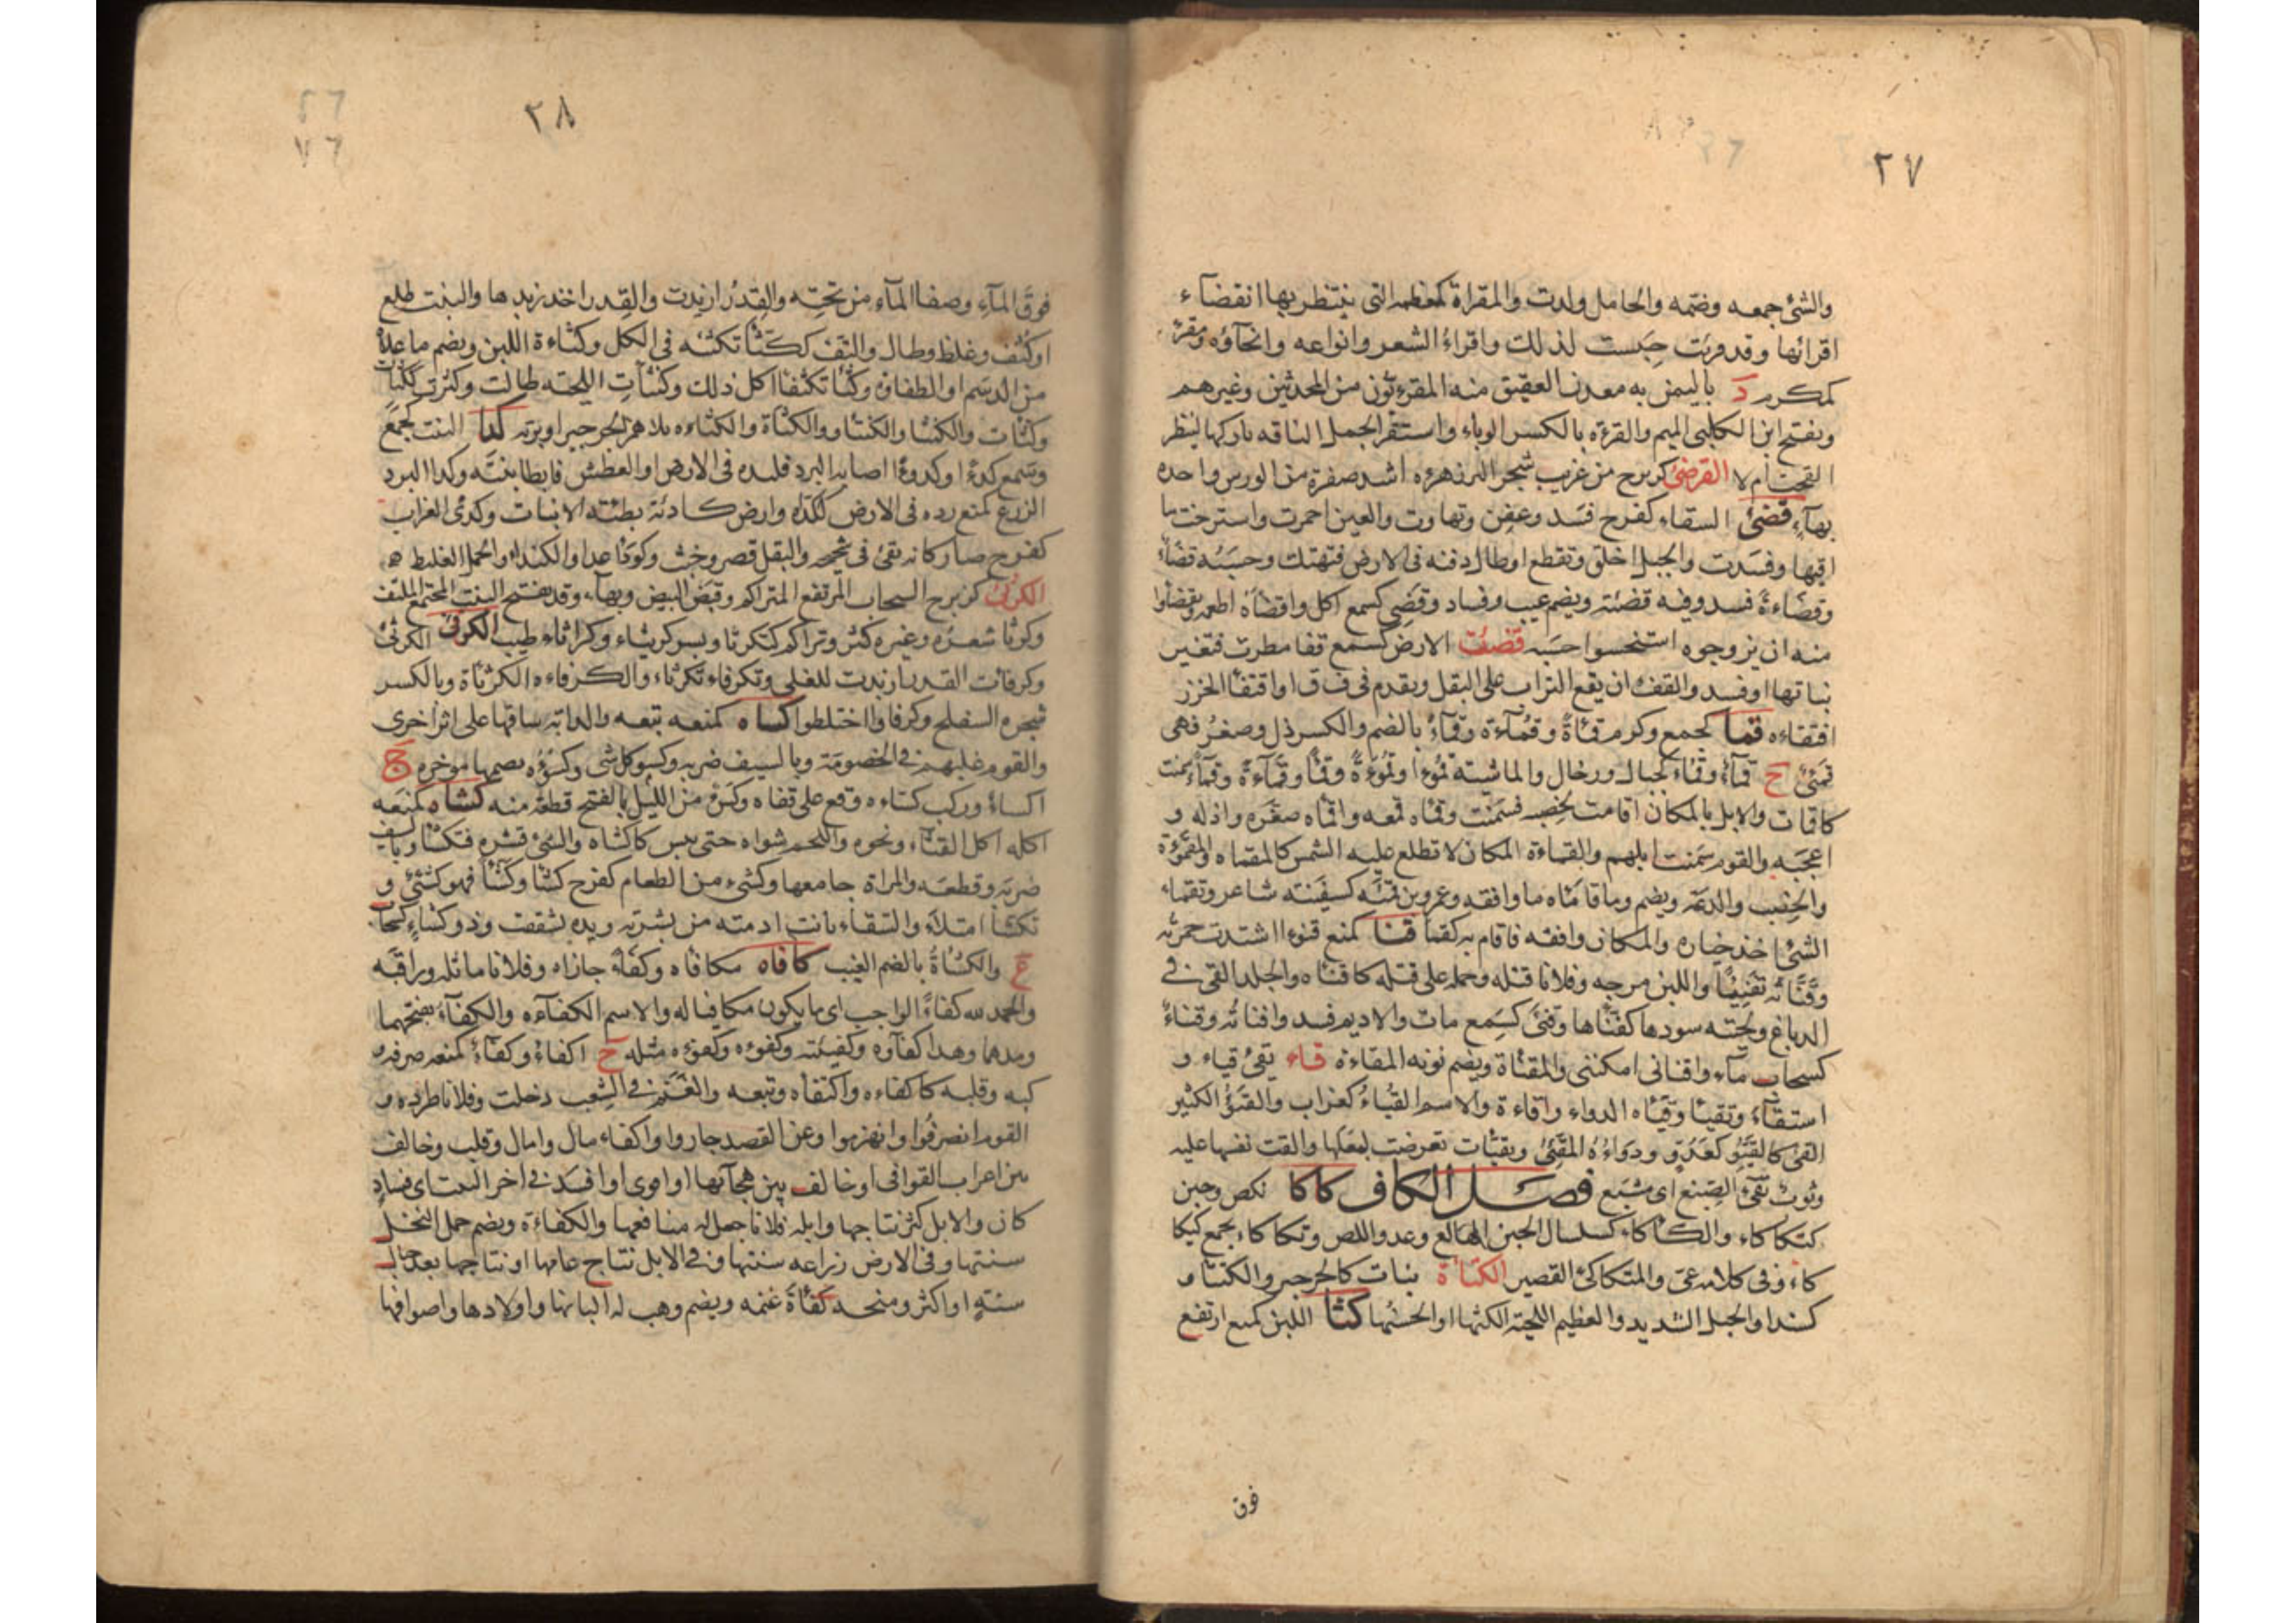 ٢٧
والشئ جمعه وضمه والحامل ولدت والمقراة كمعظمه التى ينتظر بها انقضآء
اقرائها وقد قريت حبست لذلك واقراءُ الشعر وانواعه وانحآؤه ومقرئ
كمكرم د باليمن به معدن العقيق منه المقرءيون من المحدثين وغيرهم
وبفتح ابن الكلبى الميم والقرءة بالكسر الوباء واستقرا الجمل الناقه تاركها لينظر
القحت ام لا القرضئ كزبرج من غريب شجر البر زهره اشد صفرة من الورس واحده
بهآء قضئ السقاء كفرح فسد وعفن وتهاوت والعين احمرت واسترخت ما
قيها وفسدت والحبل اخلق وتقطع اوطال دفنه فى الارض فتهتك وحسبه قضأ
وقضاءة فسد وفيه قضئته ويضم عيب وفساد وقضى كسمع اكل واقضاه اطعمه وتقضاوا
منه ان يزوجوه استخسوا حسبه قضئت الارض كسمع قفا مطرت فتغير
نباتها اوفسد والقفء ان يقع التراب على البقل ويقدم فى ف ق ا واقتفأ الخرز
افتقاءه قمأ كجمع وكرم قمأة وقمآءة وقمآءً بالضم والكسر ذل وصغر فهى
قمئ ج قمآء وقماء كجبال ورخال والماشيته قموءا وقموءة وقمأ وقمآءة وقمآء سمنت
كاقمات والابل بالمكان اقامت لخصبه فسمنت وقماه قمعه واقماه صغره واذله و
اعجبه والقوم سمنت ابلهم والقماءة المكان لا تطلع عليه الشمس كالمقماه والمقموءة
والخصب والدعة ويضم وما قامأه ما وافقه وعمرو بن قمئه كسفينته شاعر وتقماء
الشئ اخذ خياره والمكان وافقه فاقام به كقمأ قنأ كمنع قنوءا اشتدت حمرته
وقنأته تقنيئًا واللبن مزجه وفلانا قتله وحمله على قتله كاقناه والجلد القى فى
الدباغ ولحيته سودها كقنأها وقنئ كسمع مات والاديم فسد واقنائه وقناءٌ
كسحاب مآء واقنانى امكننى والمقناة ويضم نونه المقاءة قاء يقئ قياء و
استقآء وتقيأ وقيأه الدواء واقاءة والاسم القياءُ كغراب والقيوُّ الكثير
القئ كالقيو كعدو ودواءه المقيئ وتقيأت تعرضت لبعلها والقت نفسها عليه
وثوب يقئ الصبغ اى مشبع فصل الكاف كاكا نكص وجبن
كتكاكاء والكاكاء كسلسال الجبن الهالع وعدو اللص وتكاكاء تجمع ككيكا
كاء وفى كلامه عى والمتكاكئ القصير الكتاة نبات كالجرجير والكنتا و
كسنداو الحبل الشديد والعظيم اللحية الكثها او الحسنها كثأ اللبن كمنع ارتفع
فوق
٢٨
فوق المآء وصفا المآء من تحته والقدر ازبدت والقدر اخذ زبدها والنبت طلع
او كثف وغلظ وطال والتف ككثأ تكثئه فى الكل وكثاءة اللبن ويضم ما علاه
من الدسم او الطفاوة وكثأ تكثئا اكل ذلك وكثأت اللحيته طالت وكثرت ككثأت
وكنثأت والكنثا والكنثاو والكثاة والكثاءه بلا همز الجرجير او بزته كدأ النبت كجمع
وسمع كدءا وكدوءا اصابه البرد فلبده فى الارض او العطش فابطا نبته وكدا البرد
الزرع كمنع رده فى الارض ككداه وارض كادئة بطيئه الانبات وكدئ الغراب
كفرح صار كانه يقئ فى شحجه والبقل قصر وخبث وكودأ عدا والكنداو الجمل الغليظ
الكرثئ كزبرج السحاب المرتفع المتراكم وقيض البيض وبهآء وقد يفتح النبت المجتمع الملتف
وكرثأ شعره وغيره كثر وتراكم كتكرثأ وبسر كريثاء وكراثاء طيب الكرفئ الكرثئ
وكرفأت القدر ازبدت للغلى وتكرفاء تكرثاء والكرفاءه الكرثاة وبالكسر
شجره السفلح وكرفاوا اختلطوا كساه كمنعه تبعه والدابة ساقها على اثر اخرى
والقوم غلبهم فى الخصومة وبالسيف ضربه وكسؤ كل شئ وكسؤه بضمها موخره ج
اكساءٌ وركب كساءه وقع على قفاه وكسء من الليل بالفتح قطعة منه كشأه كمنعه
اكله اكل القثاء ونحوه واللحم شواه حتى يبس كاكشاه والشئ قشره فتكشأ وبالسيف
ضربه وقطعه والمراة جامعها وكشئ من الطعام كفرح كشأ وكشأً فهو كشئ و
تكشأ امتلآء والسقاء بانت ادمته من بشرته ويده تشققت وذو كشاءٍ كسحاب
ع والكشأةُ بالضم العيب كافاه مكافاه وكفاءً جازاه وفلانا ماثله وراقبه
والحمد لله كفاء الواجب اى ما يكون مكافيا له والاسم الكفآءه والكفآء بفتحهما
ومدهما وهذا كفآؤه وكفيئته وكفوءه وكفؤه مثله ج اكفاءٌ وكفاءٌ كمنعه صرفه و
كبه وقلبه كاكفاءه واكتفأه وتبعه والغنم فى الشعب دخلت وفلانا طرده و
القوم انصرفوا وانهزموا وعن القصد جاروا واكفاء مال وامال وقلب وخالف
بين اعراب القوافى او خالف بين هجآئها او اقوى او افسد فى اخر البيت اى فساد
كان والابل كثر نتاجها وابله فلانا جعل له منافعها والكفاءة ويضم حمل النخل
سنتها وفى الارض زراعه سنتها وفى الابل نتاج عامها او نتاجها بعد حيال
سنته او اكثر ومنحه كفأة غنمه ويضم وهب له البانها واولادها واصوافها